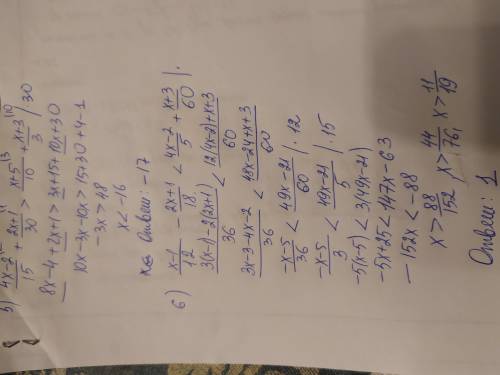 5) (4x-2)/15 + (2x+1)/30 > (x+5)/10 + (x+3)/3 | 30
8x-4+2x+1 > 3x+15+10x+30
10x-3x-10x > 15+30+4-1
-3x > 48
x < -16
Ответ: -17
6) (x-1)/12 - (2x+1)/18 < (4x-2)/5 + (x+3)/60 | ·
(3(x-1)-2(2x+1))/36 < (12(4x-2)+x+3)/60
(3x-3-4x-2)/36 < (48x-24+x+3)/60
(-x-5)/36 < (49x-21)/60 | · 12
(-x-5)/3 < (49x-21)/5 | · 15
-5(x-5) < 3(49x-21)
-5x+25 < 147x-63
-152x < -88
x > 88/152 x > 44/76, x > 11/19
Ответ: 1